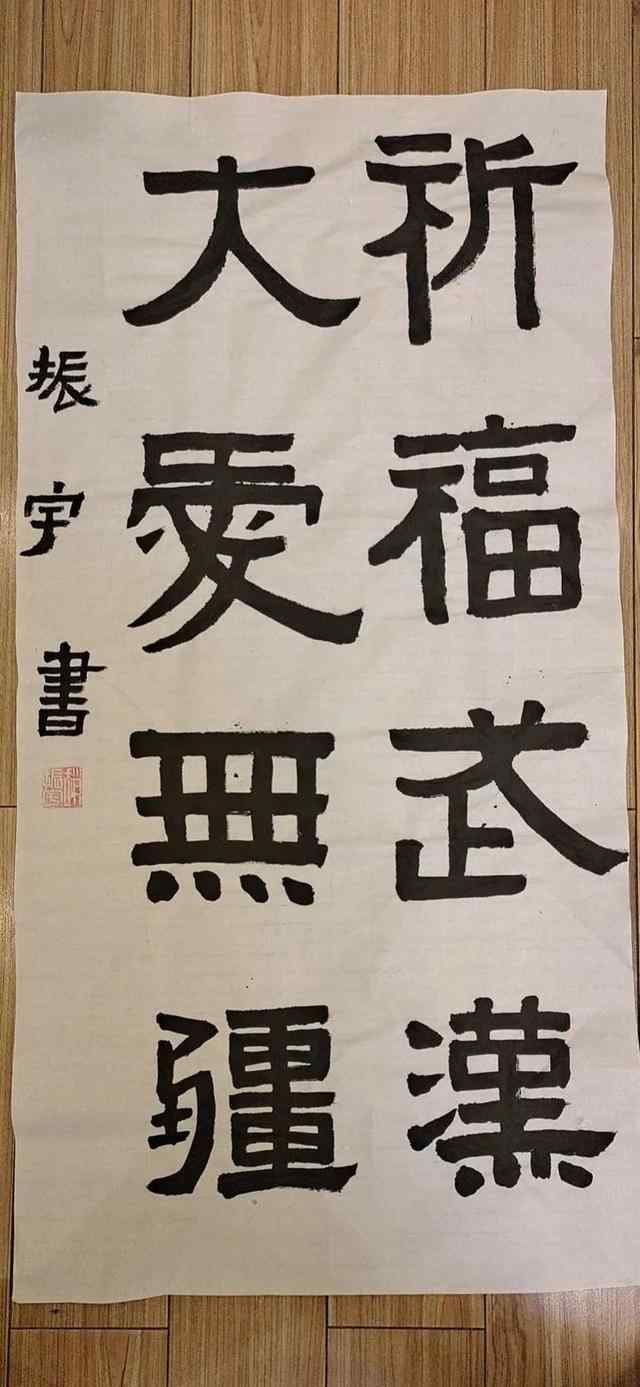 祈福武漢
大愛無疆
振宇書